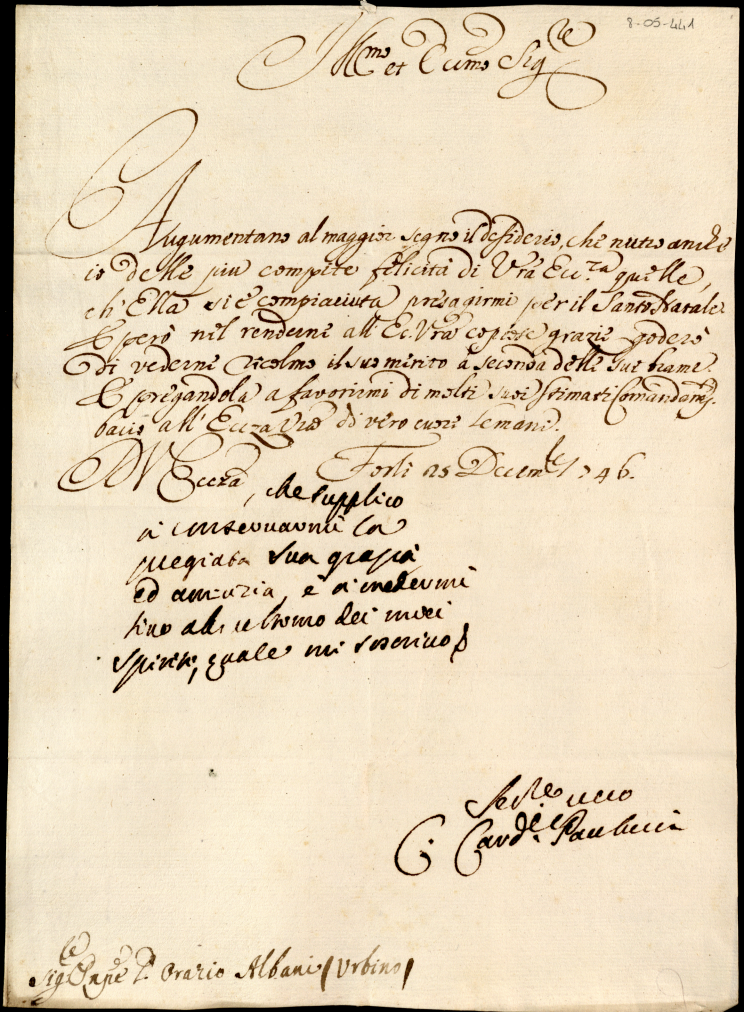 8-05-441
Ill.mo et Ecc.mo Sig.re
Augumentano al maggior segno il desiderio, che nutro anche
io delle più compite felicità di Vrā Ecc.za quelle,
ch' Ella si è compiaciuta presagirmi per il Santo Natale
E però nel renderne all' Ec. Vrā copiose grazie goderò
di vederne ricolmo il suo merito à seconda delle sue brame.
E pregandola a favorirmi di molti suoi stimati Comandam.ti
bacio all' Ecc.za Vrā di vero cuore le mani.
D V Eccza Forlì 25 Decem.bre 1746.
, che supplico
à conservarmi la
pregiata sua grazia
ed amicizia, e à credermi
sino all' ultimo dei miei
spiriti, quale mi soscrivo
Ser.re vero
C. Card.le Paulucci
Sig.re Pnpe D. Orazio Albani (Urbino)